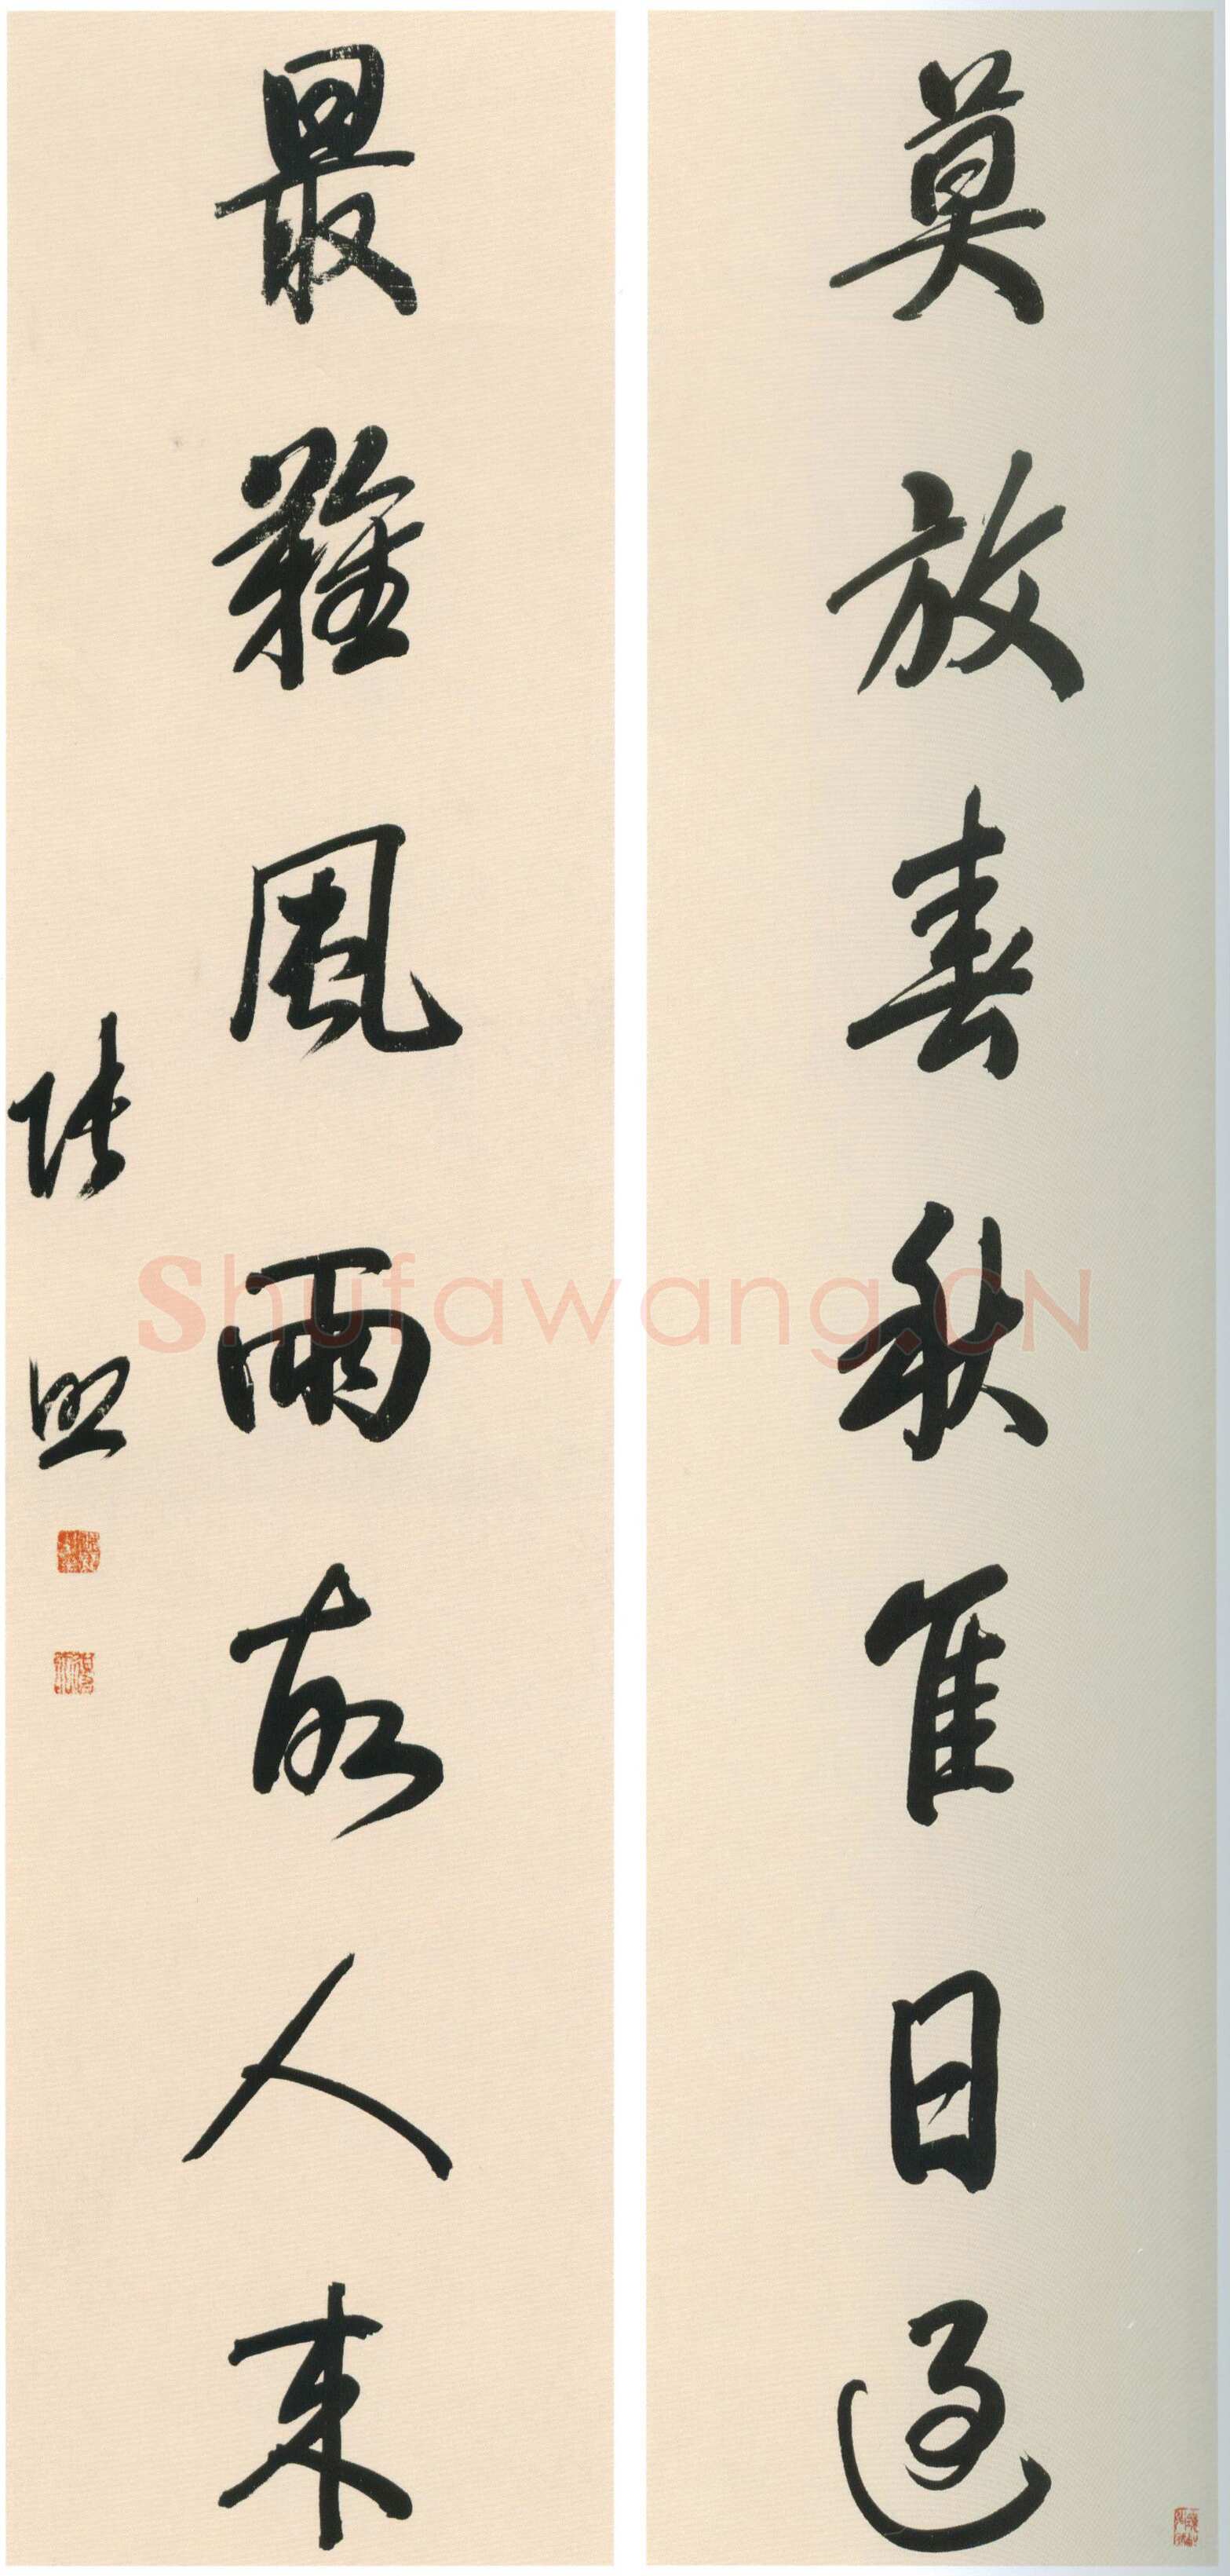 莫放春秋佳日過
最難風雨故人來
張照
Shufawang.CN